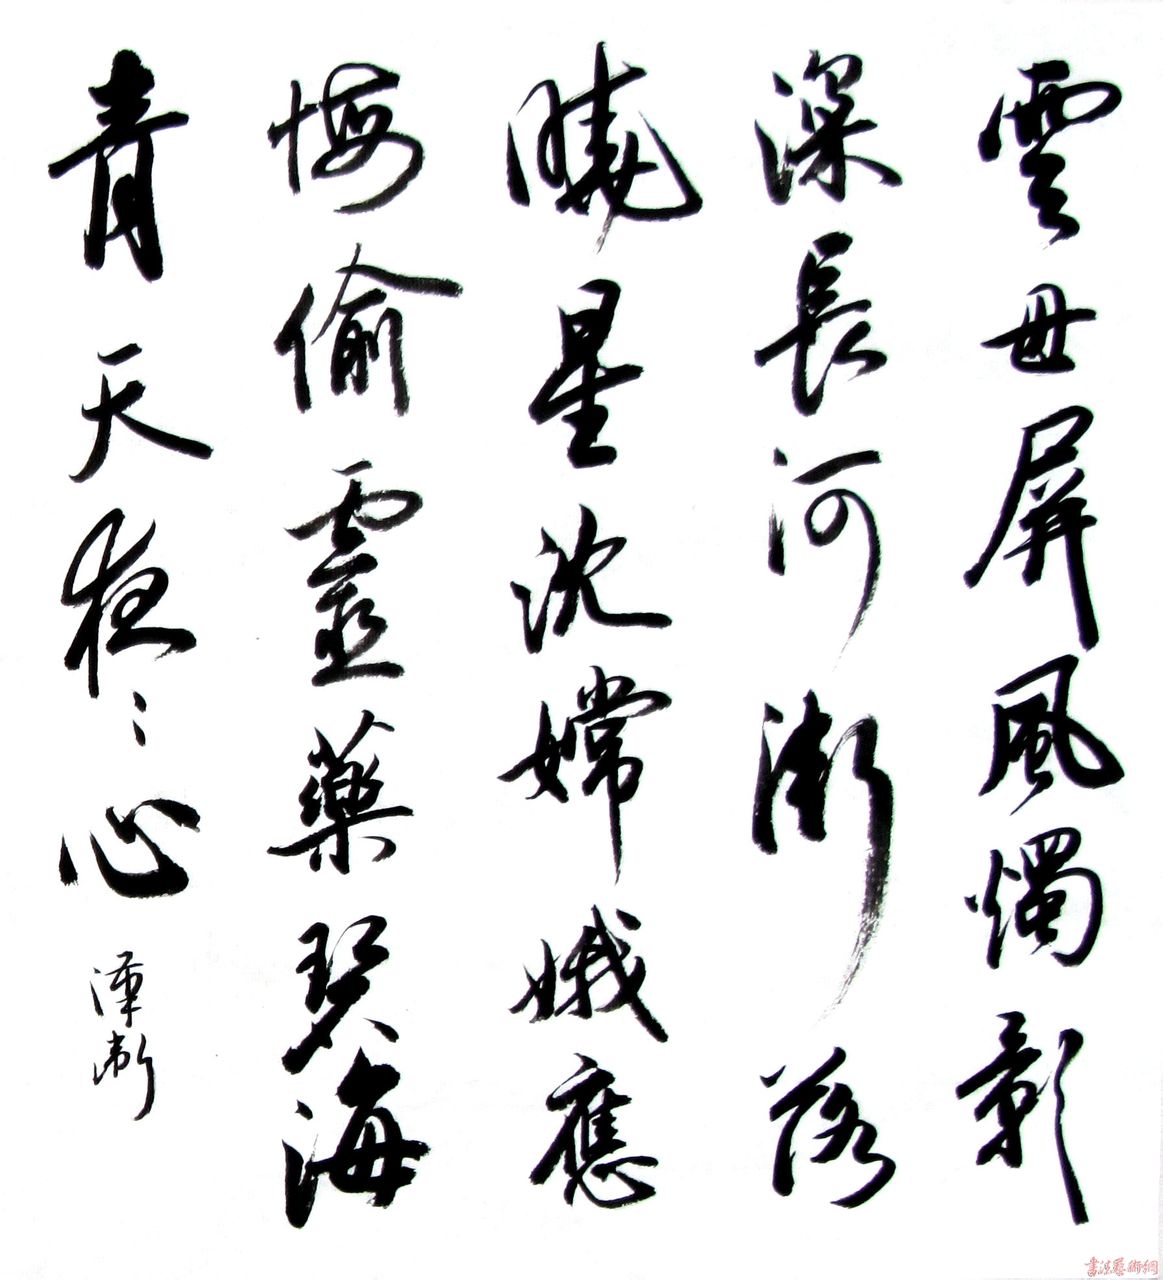 雲母屏風燭影
深長河漸落
曉星沈嫦娥應
悔偷靈藥碧海
青天夜〻心
書法藝術網